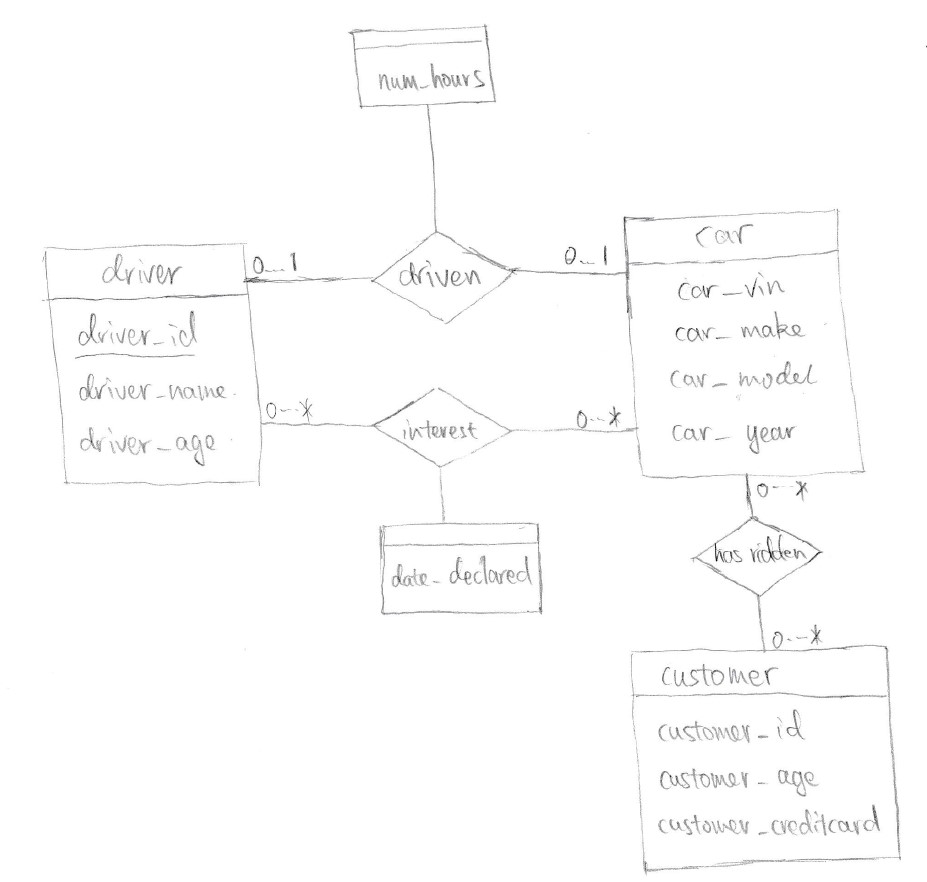 num_hours
driver
0...1
driven
0..1
car
driver_id
driver_name
driver_age
car_vin
car_make
car_model
car_year
0...*
interest
0...*
date_declared
0...*
has ridden
0...*
customer
customer_id
customer_age
customer_creditcard